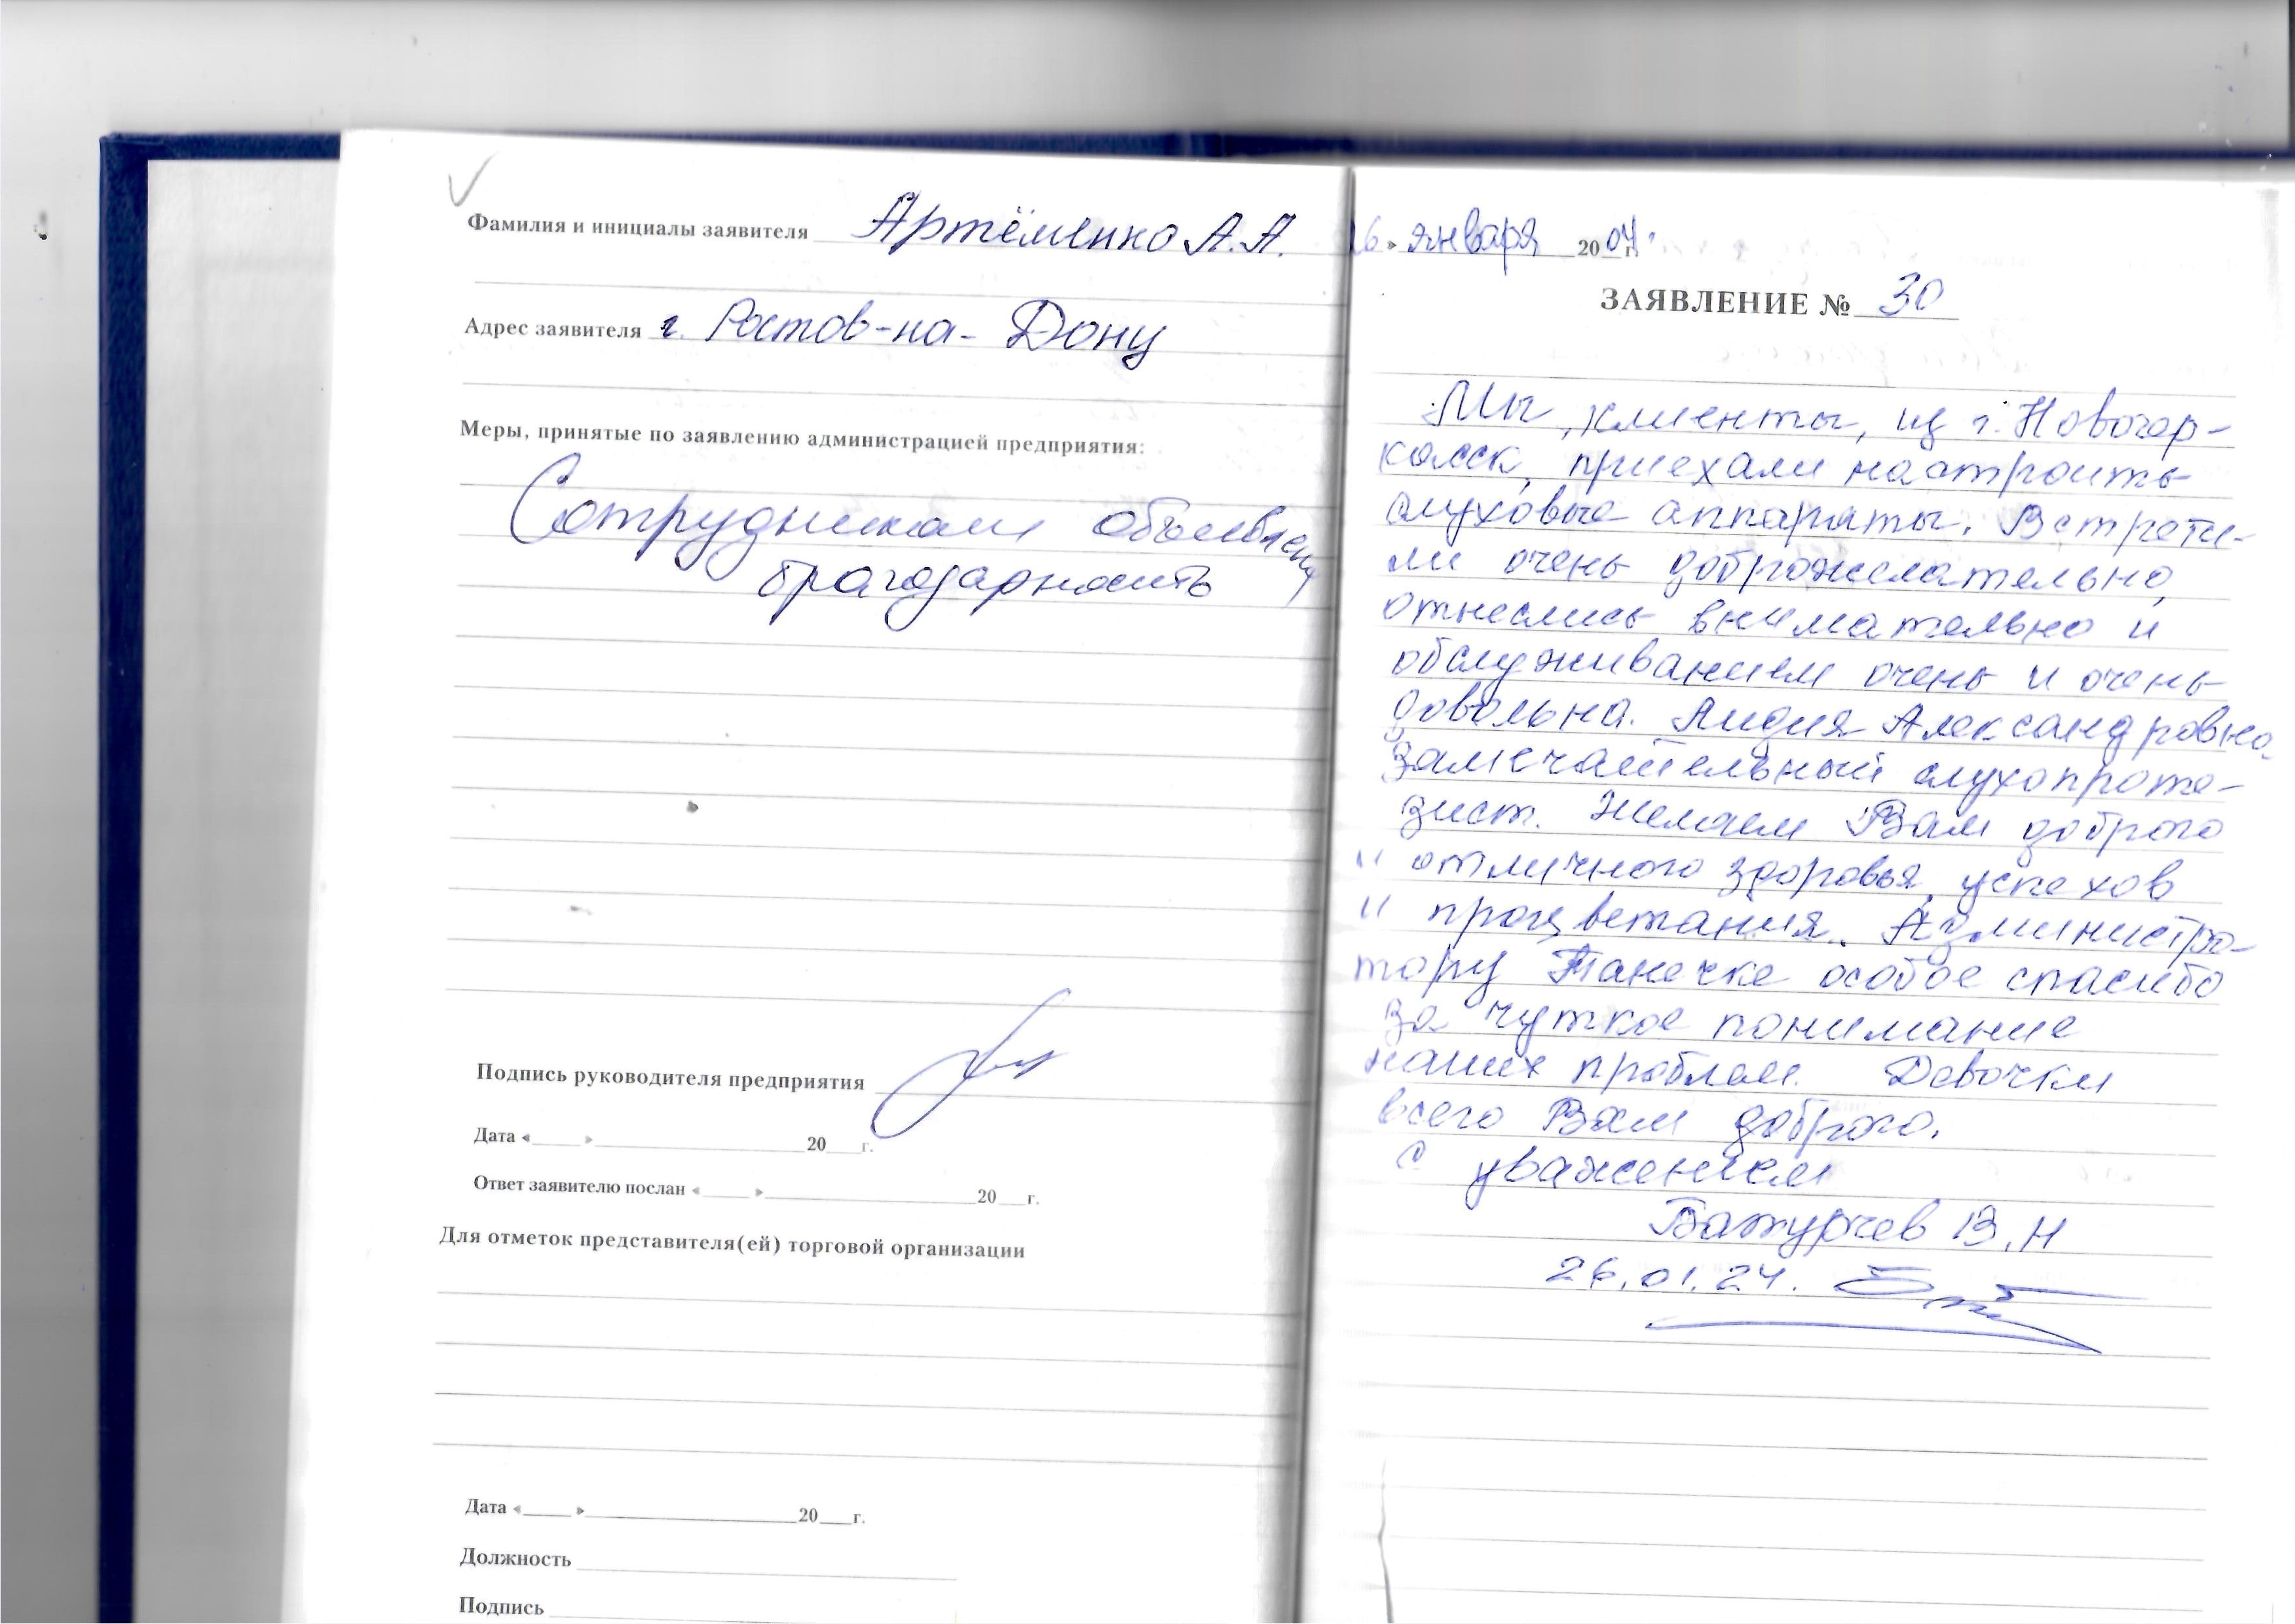 Фамилия и инициалы заявителя Артёменко А.А.
Адрес заявителя г. Ростов-на-Дону
Меры, принятые по заявлению администрацией предприятия:
Сотрудникам объявлена
благодарность
Подпись руководителя предприятия
Дата «____» ____________ 20___г.
Ответ заявителю послан «____» ____________ 20___г.
Для отметок представителя(ей) торговой организации
Дата «____» ____________ 20___г.
Должность
Подпись
26» января 2004 г.
ЗАЯВЛЕНИЕ № 30
Мы, клиенты, из г. Новочер-
касск, приехали настроить
слуховые аппараты. Встрети-
ли очень доброжелательно,
отнеслись внимательно и
обслуживанием очень и очень
довольна. Лидия Александровна
замечательный слухопроте-
зист. Желаем Вам доброго
и отличного здоровья, успехов
и процветания. Администра-
тору Танечке особое спасибо
за чуткое понимание
наших проблем. Девочки
всего Вам доброго.
С уважением
В.Н
26.01.24.